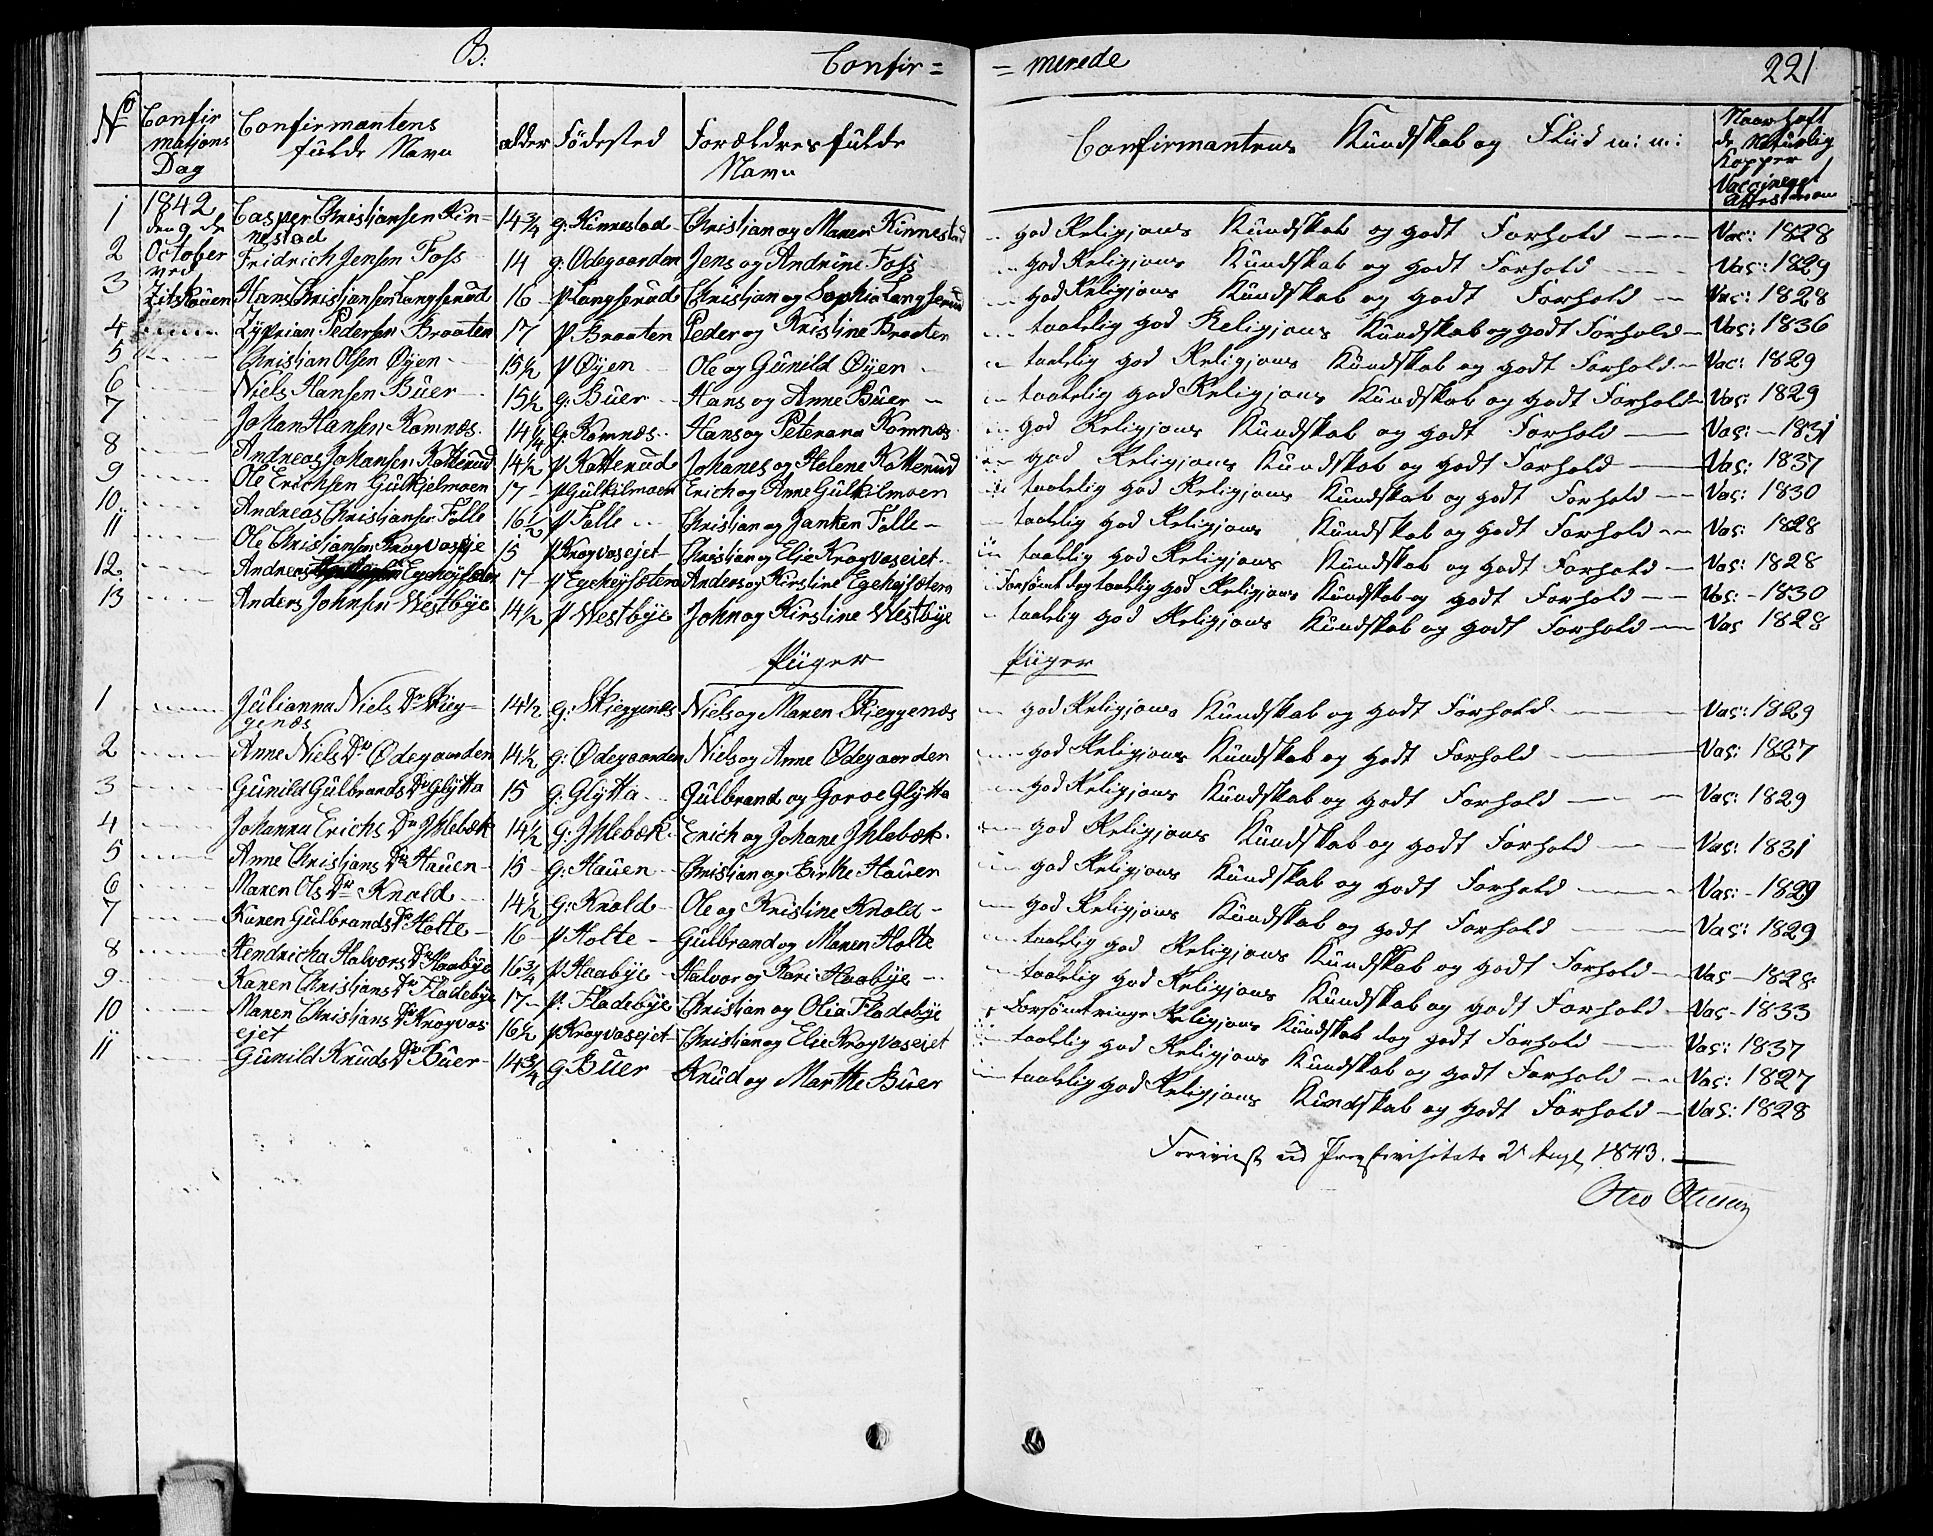 B.
Confir= =merede 221
No Confirmations Dag Confirmantens fulde Navn alder Fødested Forældres fulde Navn Confirmantens Kundskab og Fliid m: m: Naar haft de Naturlig Kopper Vaccineret
1 1842 den 9de Casper Christiansen Kinnestad 14 3/4 g: Kinnestad Christian og Maren Kinnestad god Religions Kundskab og godt Forhold Vac: 1828
2 October ved Fridrich Jensen Foss 14 g: Ødegaarden Jens og Andrine Foss god Religjons Kundskab og godt Forhold Vac: 1829
3 Zitskauen Hans Christjansen Langserud 16 p Langserud Christjan og Sophia Langserud god Religjons Kundskab og godt Forhold Vac: 1828
4 Zyprian Pedersen Braaten 17 p Braaten Peder og Kristine Braaten taalelig god Religjons Kundskab og godt Forhold Vac: 1836
5 Christian Olsen Øyen 15 1/2 p Øyen Ole og Gunild Øyen taalelig god Religjons Kundskab og godt Forhold Vac: 1829
6 Niels Hansen Buer 15 1/2 g: Buer Hans og Anne Buer taalelig god Religjons Kundskab og godt Forhold Vac: 1829
7 Johan Hansen Komnæs 14 1/4 g: Komnæs Hans og Peterana Komnæs god Religjons Kundskab og godt Forhold Vac: 1831
8 Andreas Johansen Katterud 14 1/2 p Katterud Johanes og Helene Katterud god Religjons Kundskab og godt Forhold Vac: 1837
9 Ole Erichsen Gulkjelmoen 17 p Gulkilmoen Erich og Anne Gulkilmoen taalelig god Religjons Kundskab og godt Forhold Vac: 1830
10 Andreas Christjansen Falle 16 1/2 p Falle Christjan og Janken Falle taalelig god Religjons Kundskab og godt Forhold Vac: 1828
11 Ole Christjansen Krogvaseje 15 p Krogvasejet Christian og Elie Krogvaseiet taalelig god Religjons Kundskab og godt Forhold Vac: 1828
12 Andreas Egehøjsæteren 17 p Egehøjsæteren Anders og Kirstine Egehøjsætern Forsømt dog taalelig god Religjons Kundskab og godt Forhold Vac: 1830
13 Anders Johnsen Westbye 14 1/2 p Westbye John og Kirstine Westbye taalelig god Religjons Kundskab og godt Forhold Vac 1828
Piiger Piiger
1 Julianna Niels Dr Skieggenæs 14 1/2 g: Skieggenæs Niels og Maren Skieggenæs god Religjons Kundskab og godt Forhold Vac: 1829
2 Anne Niels Dr Ødegaarden 14 1/2 g: Ødegaarden Niels og Anne Ødegaarden god Religjons Kundskab og godt Forhold Vac: 1827
3 Gunild Gulbrands Dr Glytta 15 g: Glytta Gulbrand og Goroe Glytta god Religjons Kundskab og godt Forhold Vac: 1829
4 Johanna Erichs Dr Ihlebæk 14 1/2 g: Ihlebæk Erich og Johane Ihlebæk god Religjons Kundskab og godt Forhold Vac: 1831
5 Anne Christjans Dr Hauen 15 g: Hauen Christjan og Birthe Hauen god Religjons Kundskab og godt Forhold Vac: 1829
6 Maren Ols Dr Knold 14 1/2 g: Knold Ole og Kristine Knold god Religjons Kundskab og godt Forhold Vac: 1829
7 Karen Gulbrands Dr Holte 16 p Holte Gulbrand og Maren Holte taalelig god Religjons Kundskab og godt Forhold Vac 1828
8 Hendricha Halvors Dr Haabye 16 3/4 p Haabye Halvor og Kari Haabye taalelig god Religjons Kundskab og godt Forhold Vac 1833
9 Karen Christjans Dr Fladebye 17 p. Fladebye Christjan og Olia Fladebye Forsømt ringe Religjons Kundskab dog godt Forhold Vac: 1837
10 Maren Christjans Dr Krogvasejet 16 1/2 p Krogvasejet Christjan og Elie Krogvaseiet taalelig god Religjons Kundskab og godt Forhold Vac: 1827
11 Gunild Knuds Dr Buer 14 3/4 g Buer Knud og Marthe Buer taalelig god Religjons Kundskab og godt Forhold Vac: 1828
Foreviist ved 1843.